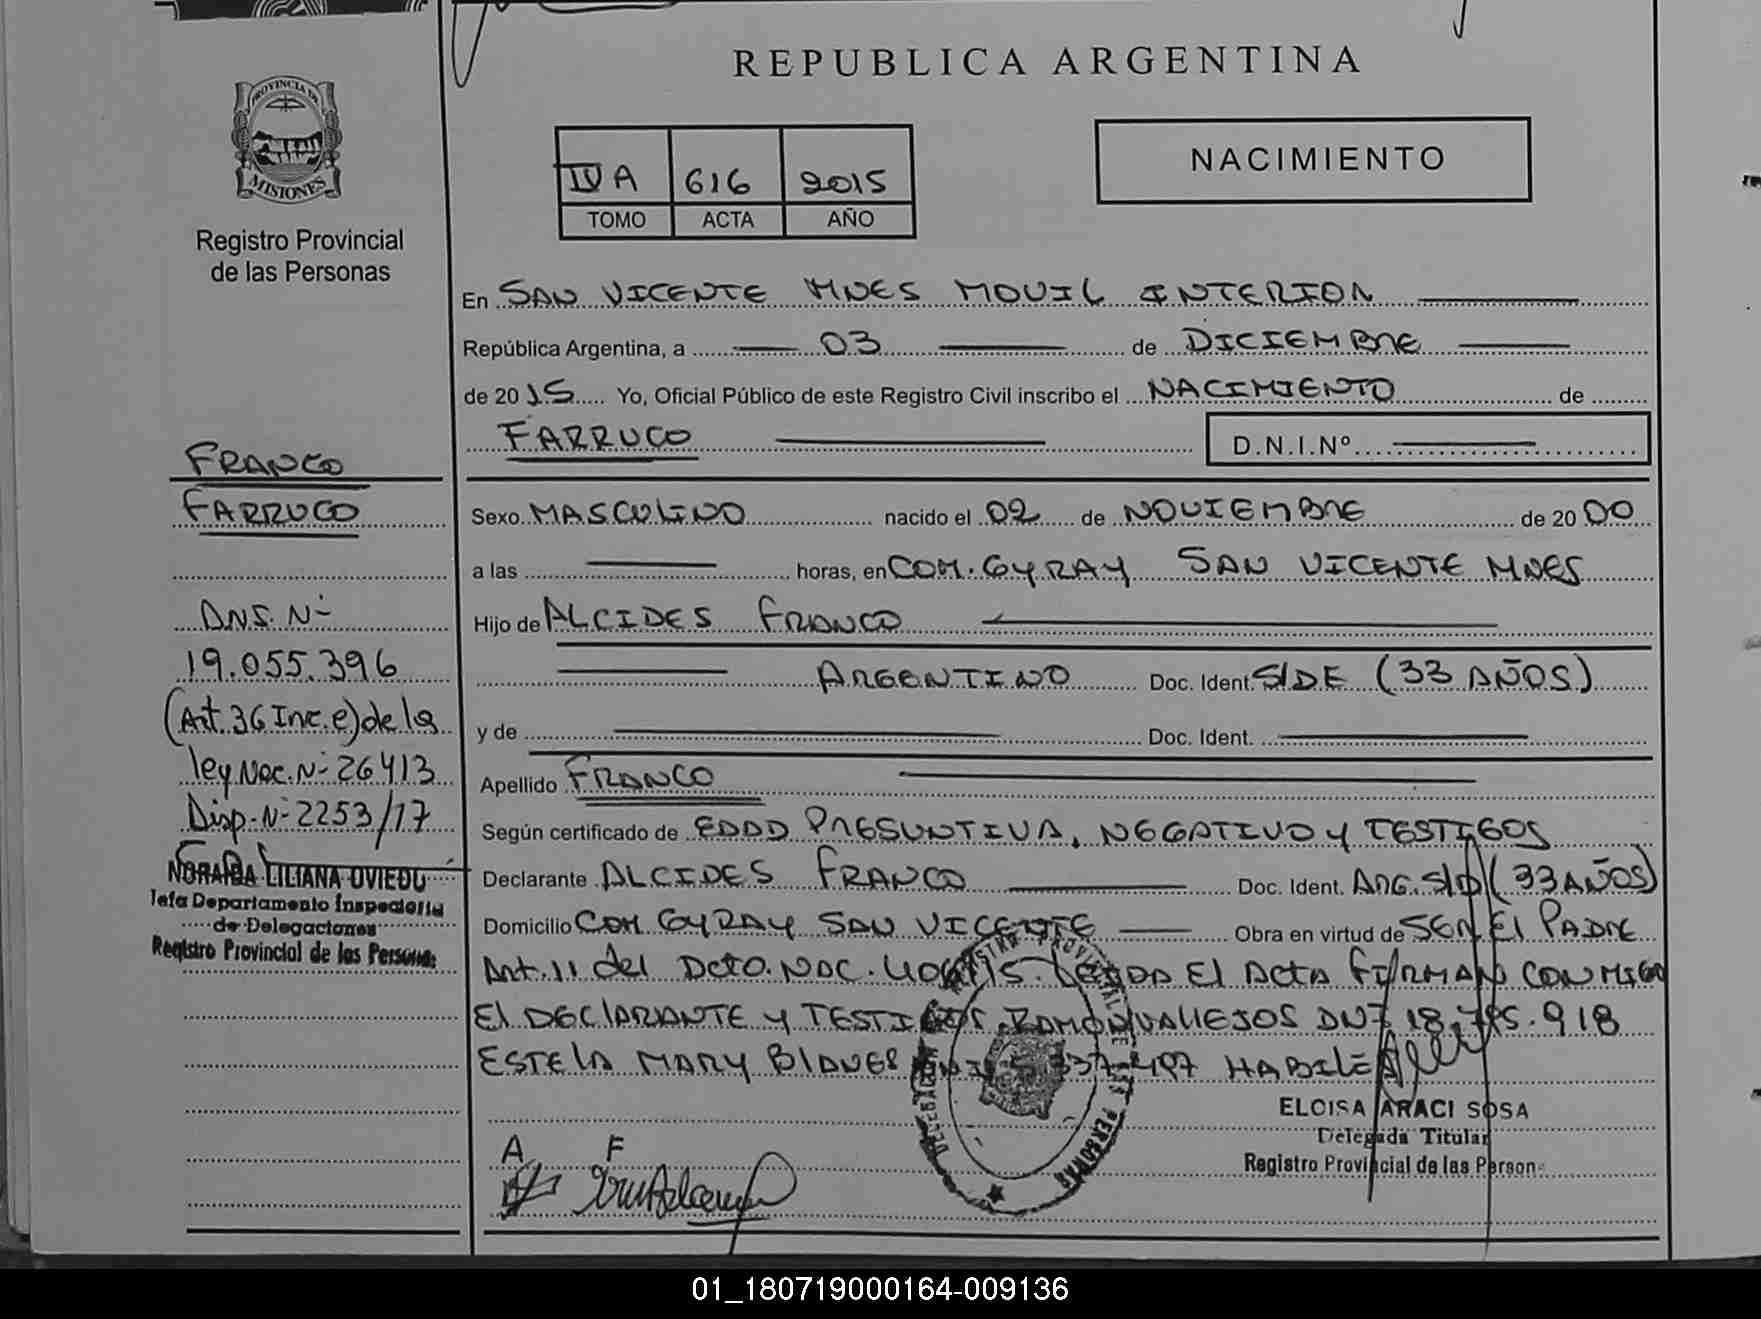 REPUBLICA ARGENTINA
PROVINCIA DE
MISIONES
Registro Provincial
de las Personas
IV A 616 2015
TOMO ACTA AÑO
NACIMIENTO
En SAN VICENTE MNES MOVIL INTERIOR
República Argentina, a 03 de DICIEMBRE
de 2015 Yo, Oficial Público de este Registro Civil inscribo el NACIMIENTO de
FARRUCO D.N.I.Nº
Sexo MASCULINO nacido el 02 de NOVIEMBRE de 2000
a las horas, en COM. GY RAY SAN VICENTE MNES
Hijo de ALCIDES FRANCO
ARGENTINO Doc. Ident. S/DE (33 AÑOS)
y de Doc. Ident.
Apellido FRANCO
Según certificado de EDAD PRESUNTIVA, NEGATIVO Y TESTIGOS
Declarante ALCIDES FRANCO Doc. Ident. ARG. S/D (33 AÑOS)
Domicilio COM GY RAY SAN VICENTE Obra en virtud de SER El PADRE
Art. 11 del Dcto. NAC. El ACTA FIRMAN CONMIGO
El DEClARANTE Y TESTIGOS RAMON VALLEJOS DNI 18.785.918
ESTElA MARY HABILES
ELOISA ARACI SOSA
Delegada Titular
Registro Provincial de las Person
A F
FRANCO
FARRUCO
DNI. Nº
19.055.396
(Art. 36 Inc. e) de la
ley Nac. Nº 26413
Disp. Nº 2253/17
NORAIDA LILIANA OVIEDO
Jefa Departamento Inspectoria
de Delegaciones
Registro Provincial de las Personas
01_180719000164-009136